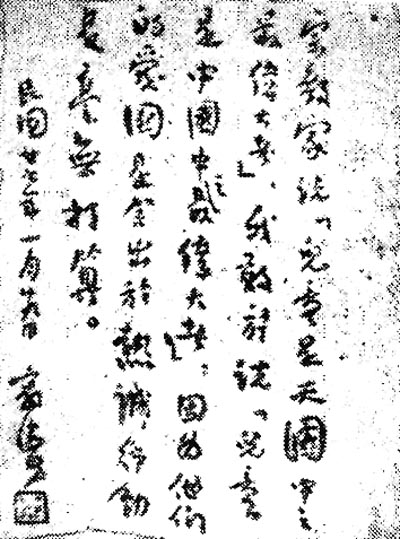 宗教家說「兒童是天國中之
最偉大者」、我敢於說「兒童
是中國中之最偉大者」。因为他們
的愛國是全出於熱誠,行動
是毫無打算。
民國廿三年一月